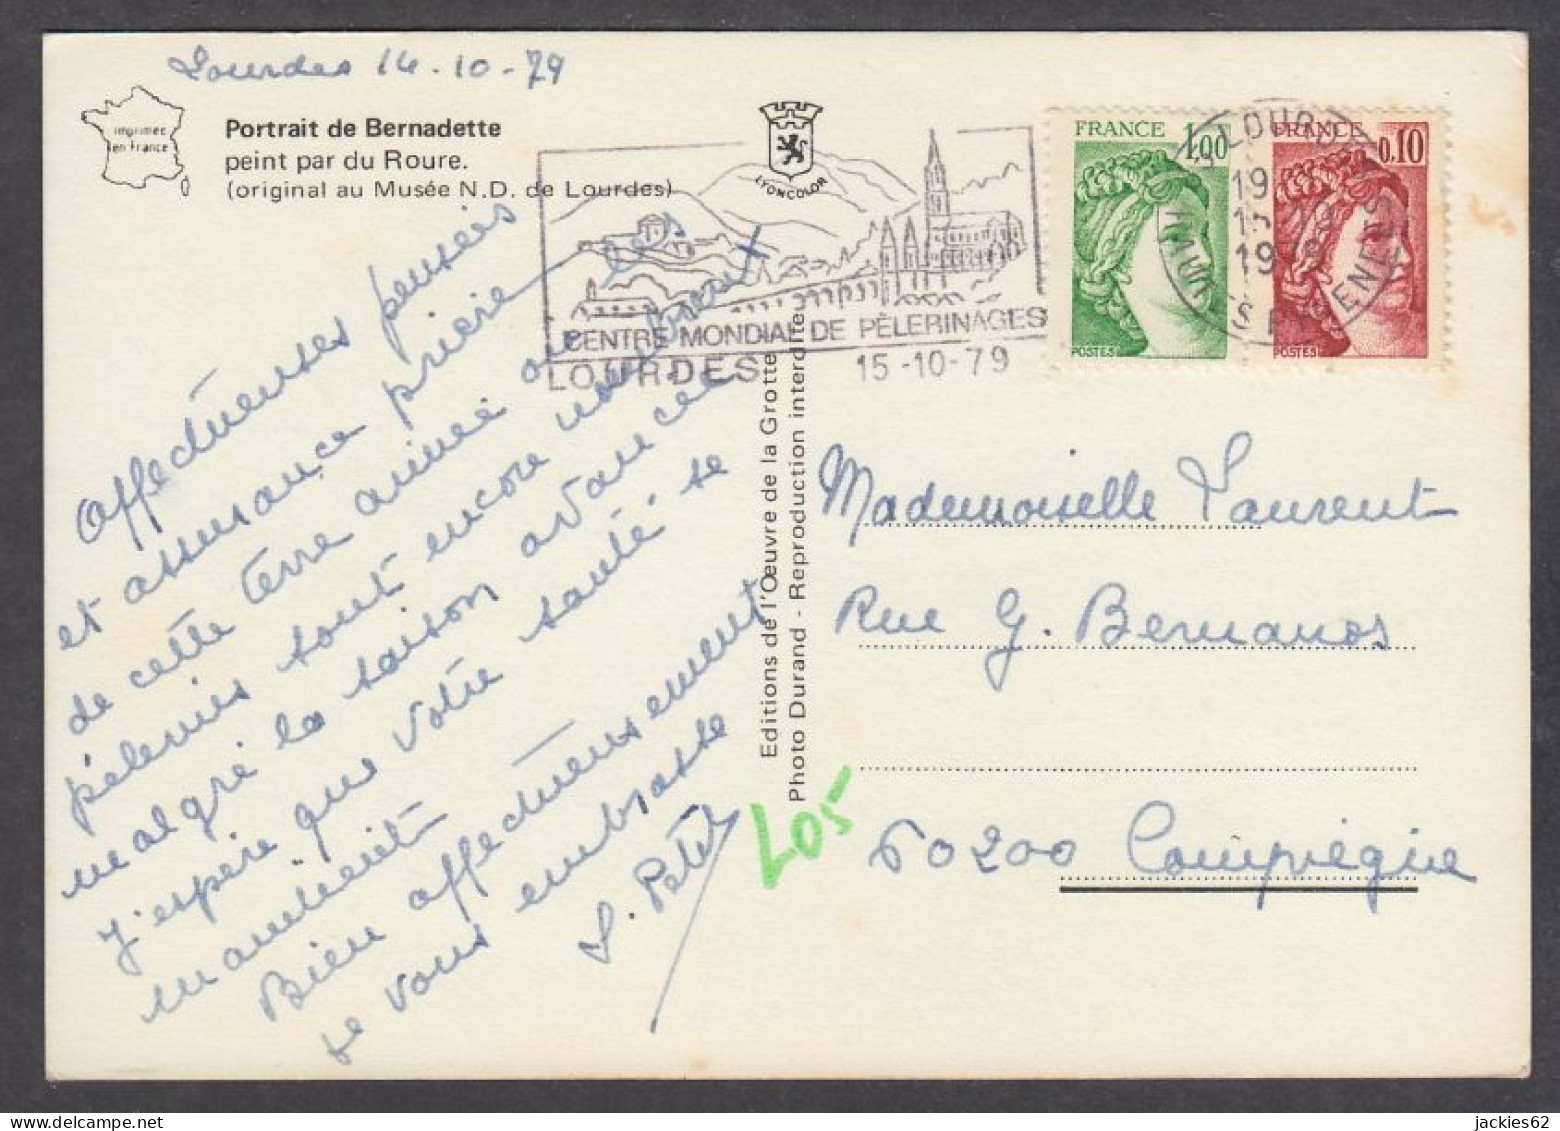 Lourdes 14-10-79
imprimée
en France
Portrait de Bernadette
peint par du Roure.
(original au Musée N.D. de Lourdes)
LYONCOLOR
CENTRE MONDIAL DE PÈLERINAGES
LOURDES 15-10-79
FRANCE 1,00
POSTES
FRANCE 0,10
POSTES
LOURDES
19
15-10
1979
HAUTES PYRENEES
Affectueuses pensées
et assurance prière
de cette terre aimée où les
pèlerins sont encore nombreux
malgré la saison avancée
j'espère que votre santé se
maintient
Bien affectueusement
je vous embrasse
S. Petit
Editions de l'Œuvre de la Grotte
Photo Durand - Reproduction interdite
L05
Mademoiselle Laurent
Rue G. Bernanos
60200 Compiègne
jackies62